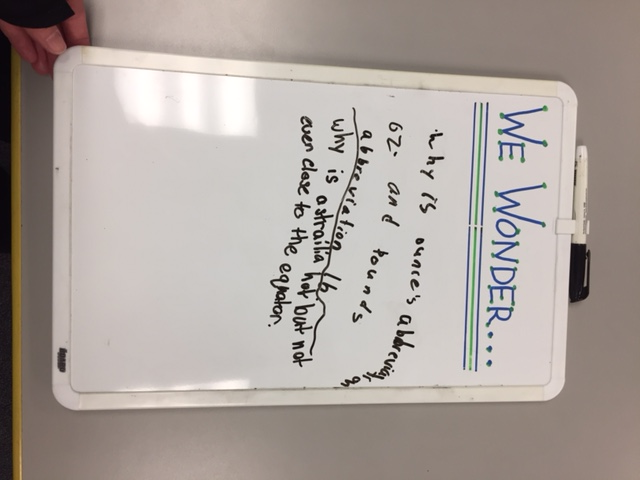 WE WONDER....
why is ounce's abbreviation
oz. and pounds
abbreviation lb.
why is astrailia hot but not
even close to the equator.